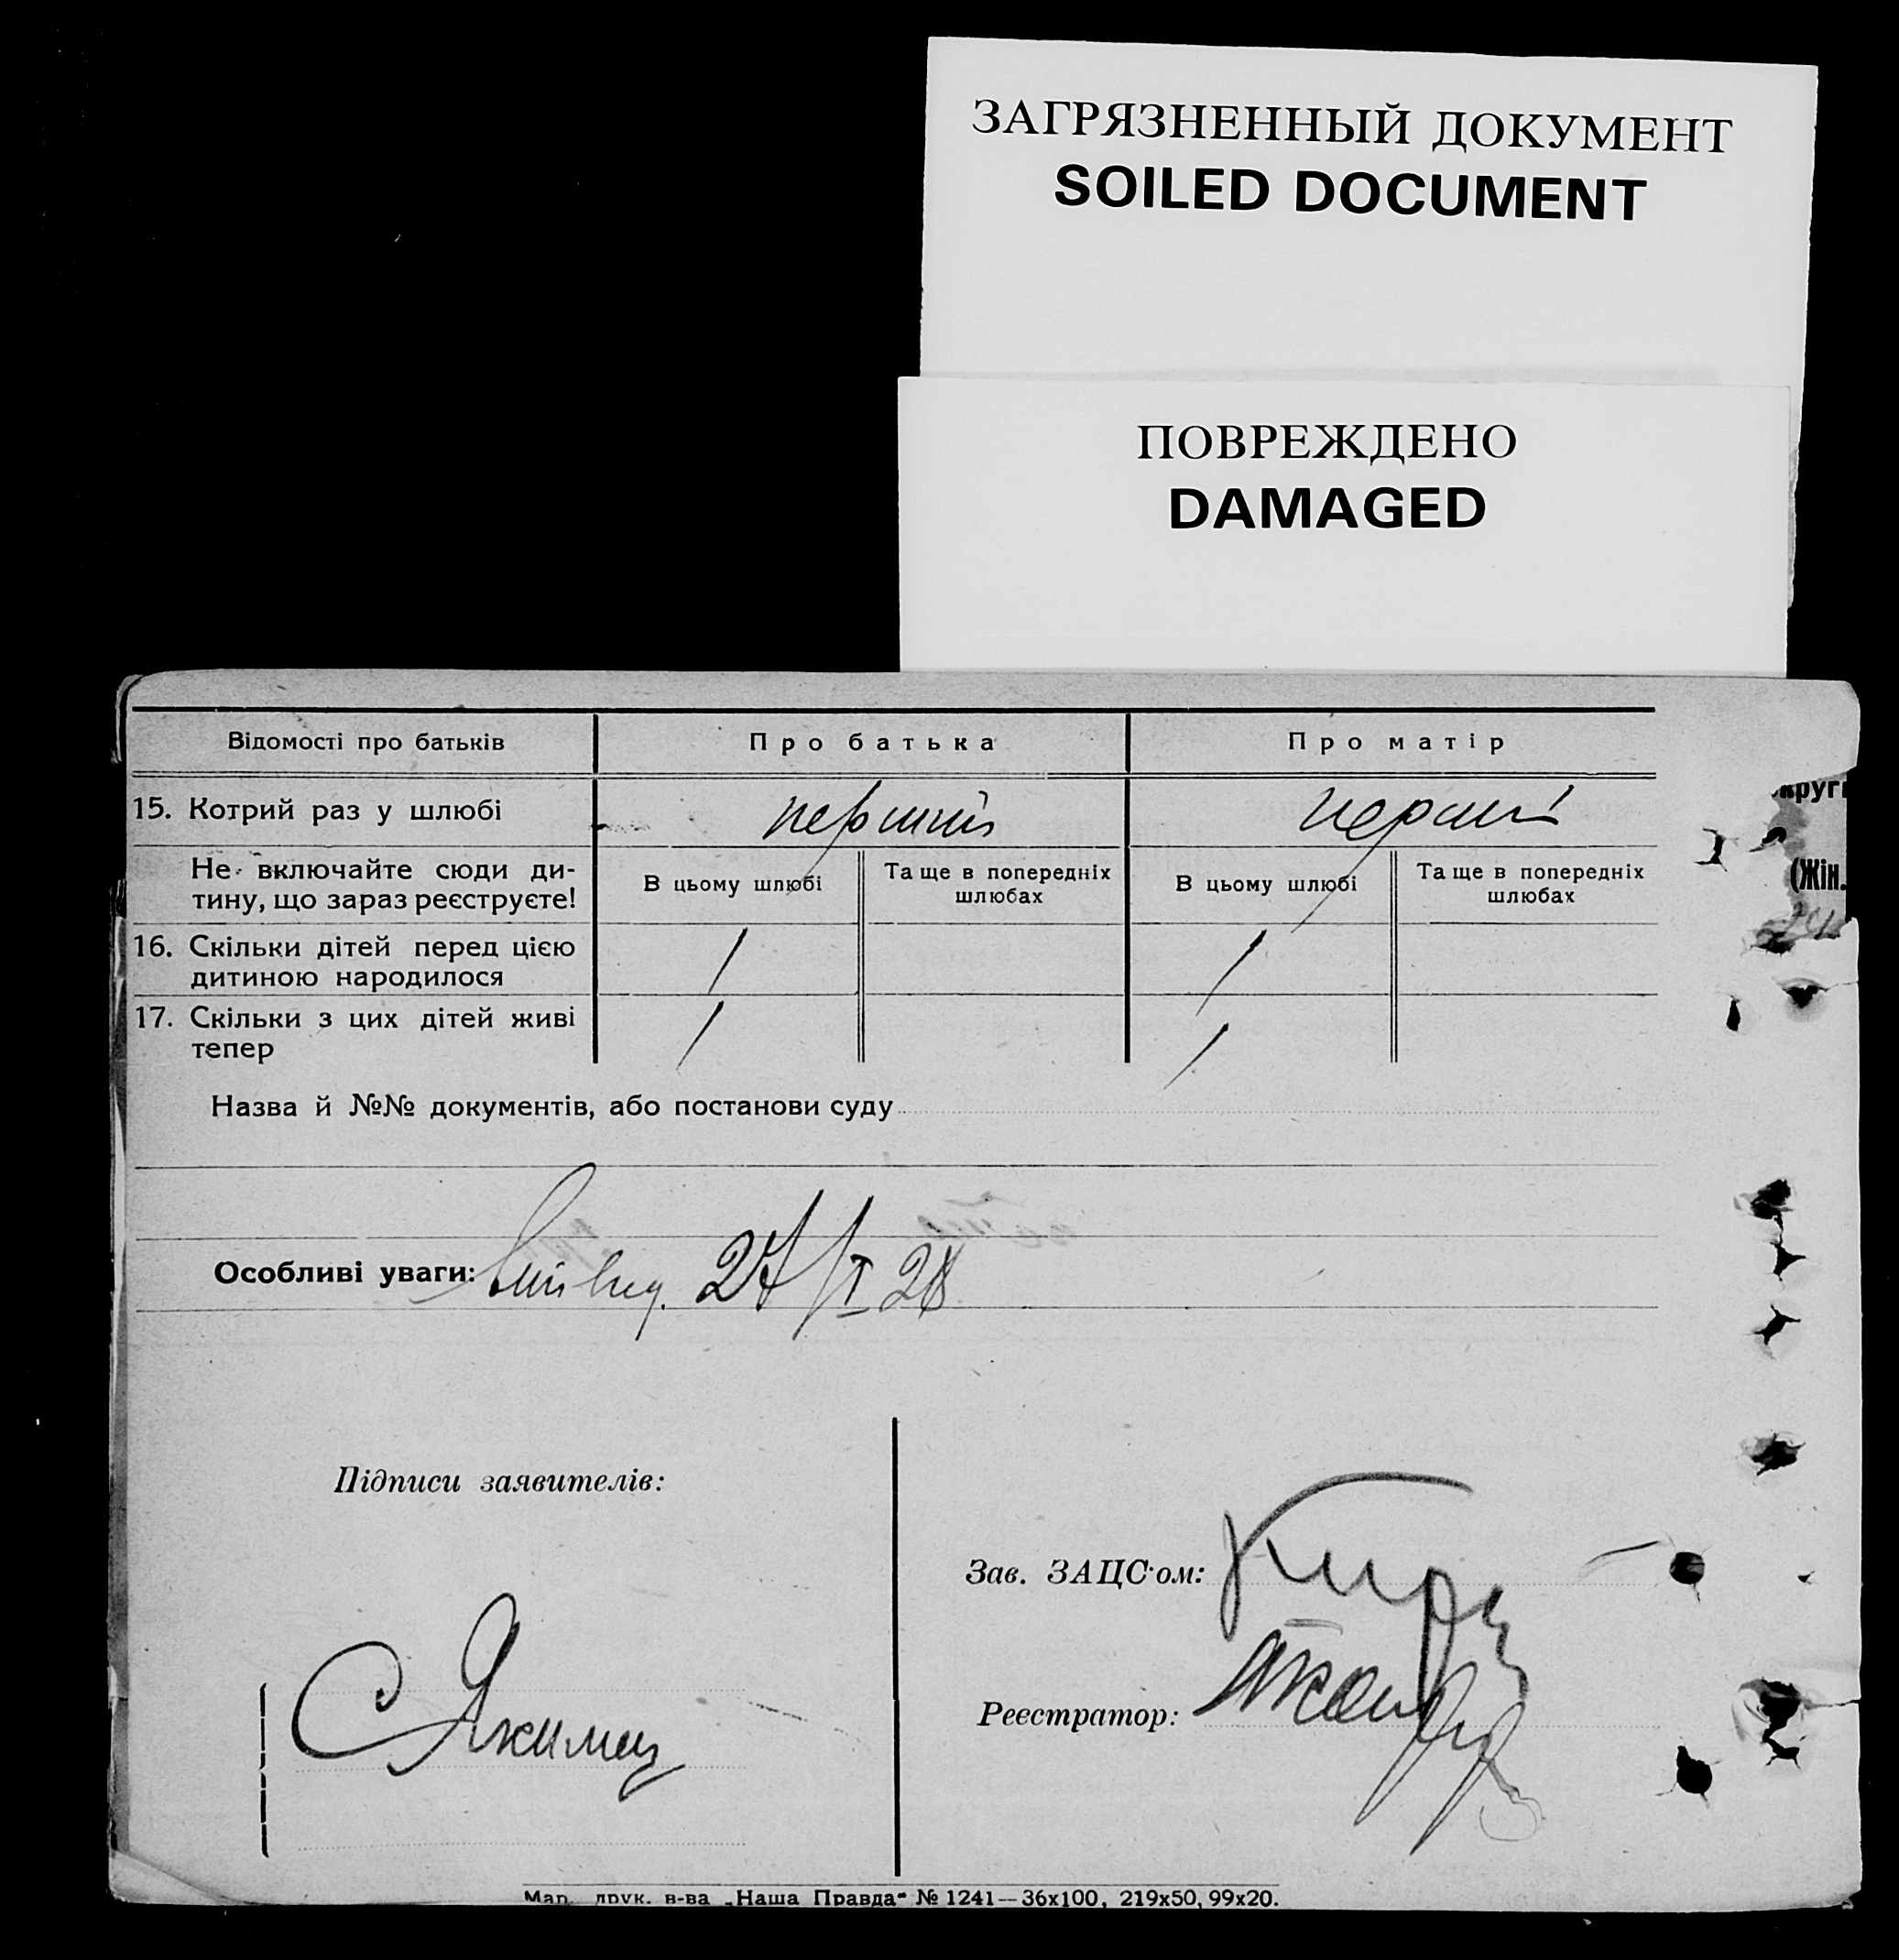 ЗАГРЯЗНЕННЫЙ ДОКУМЕНТ
SOILED DOCUMENT
ПОВРЕЖДЕНО
DAMAGED
Відомості про батьків Про батька Про матір
15. Котрий раз у шлюбі перший перший
Не включайте сюди ди-
тину, що зараз реєструєте!
В цьому шлюбі Та ще в попередніх шлюбах В цьому шлюбі Та ще в попередніх шлюбах
16. Скільки дітей перед цією
дитиною народилося
/ /
17. Скільки з цих дітей живі
тепер
/ /
Назва й №№ документів, або постанови суду
Особливі уваги: 27/I 28
Підписи заявителів:
Зав. ЗАЦС'ом:
С Якимец
Реєстратор:
Мар. друк. в-ва „Наша Правда“ № 1241—36х100, 219х50, 99х20.
(Жін.